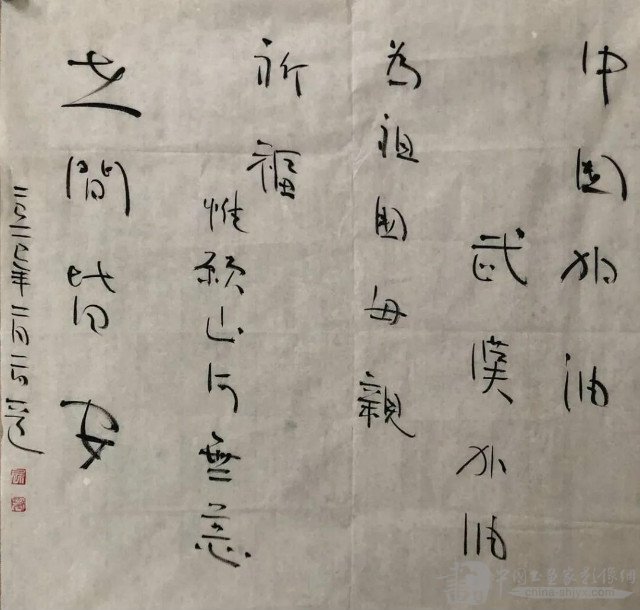 中國加油
武漢加油
為祖國母親
祈福
惟願山河無恙
世間皆安
二〇二〇年二月二日
中国书画家影像網
china-shjyx.com